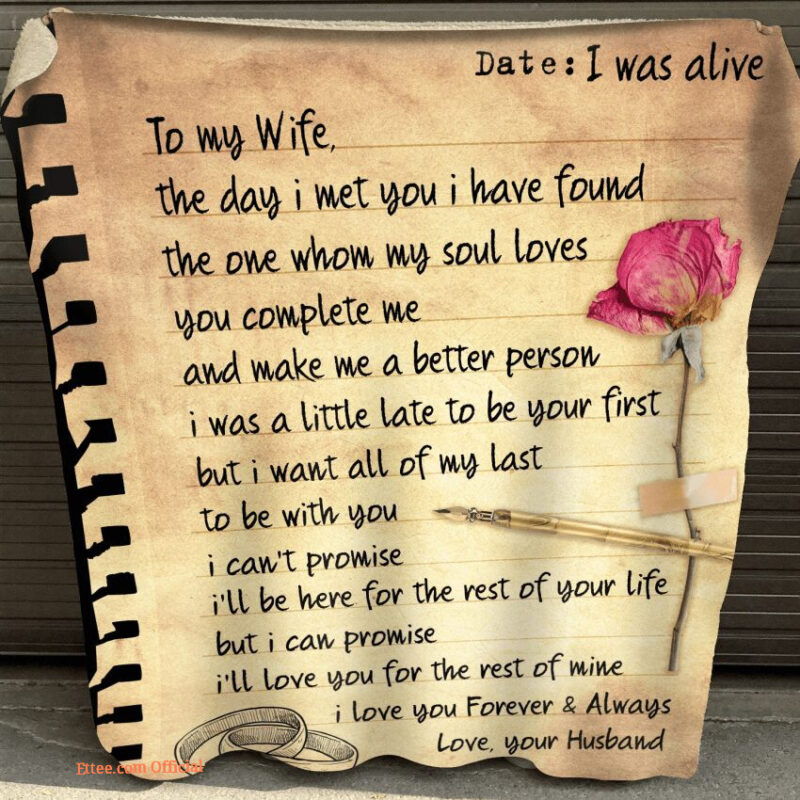 Date: I was alive
To my Wife,
the day i met you i have found
the one whom my soul loves
you complete me
and make me a better person
i was a little late to be your first
but i want all of my last
to be with you
i can't promise
i'll be here for the rest of your life
but i can promise
i'll love you for the rest of mine
i love you Forever & Always
Love, your Husband
Ettee.com Official